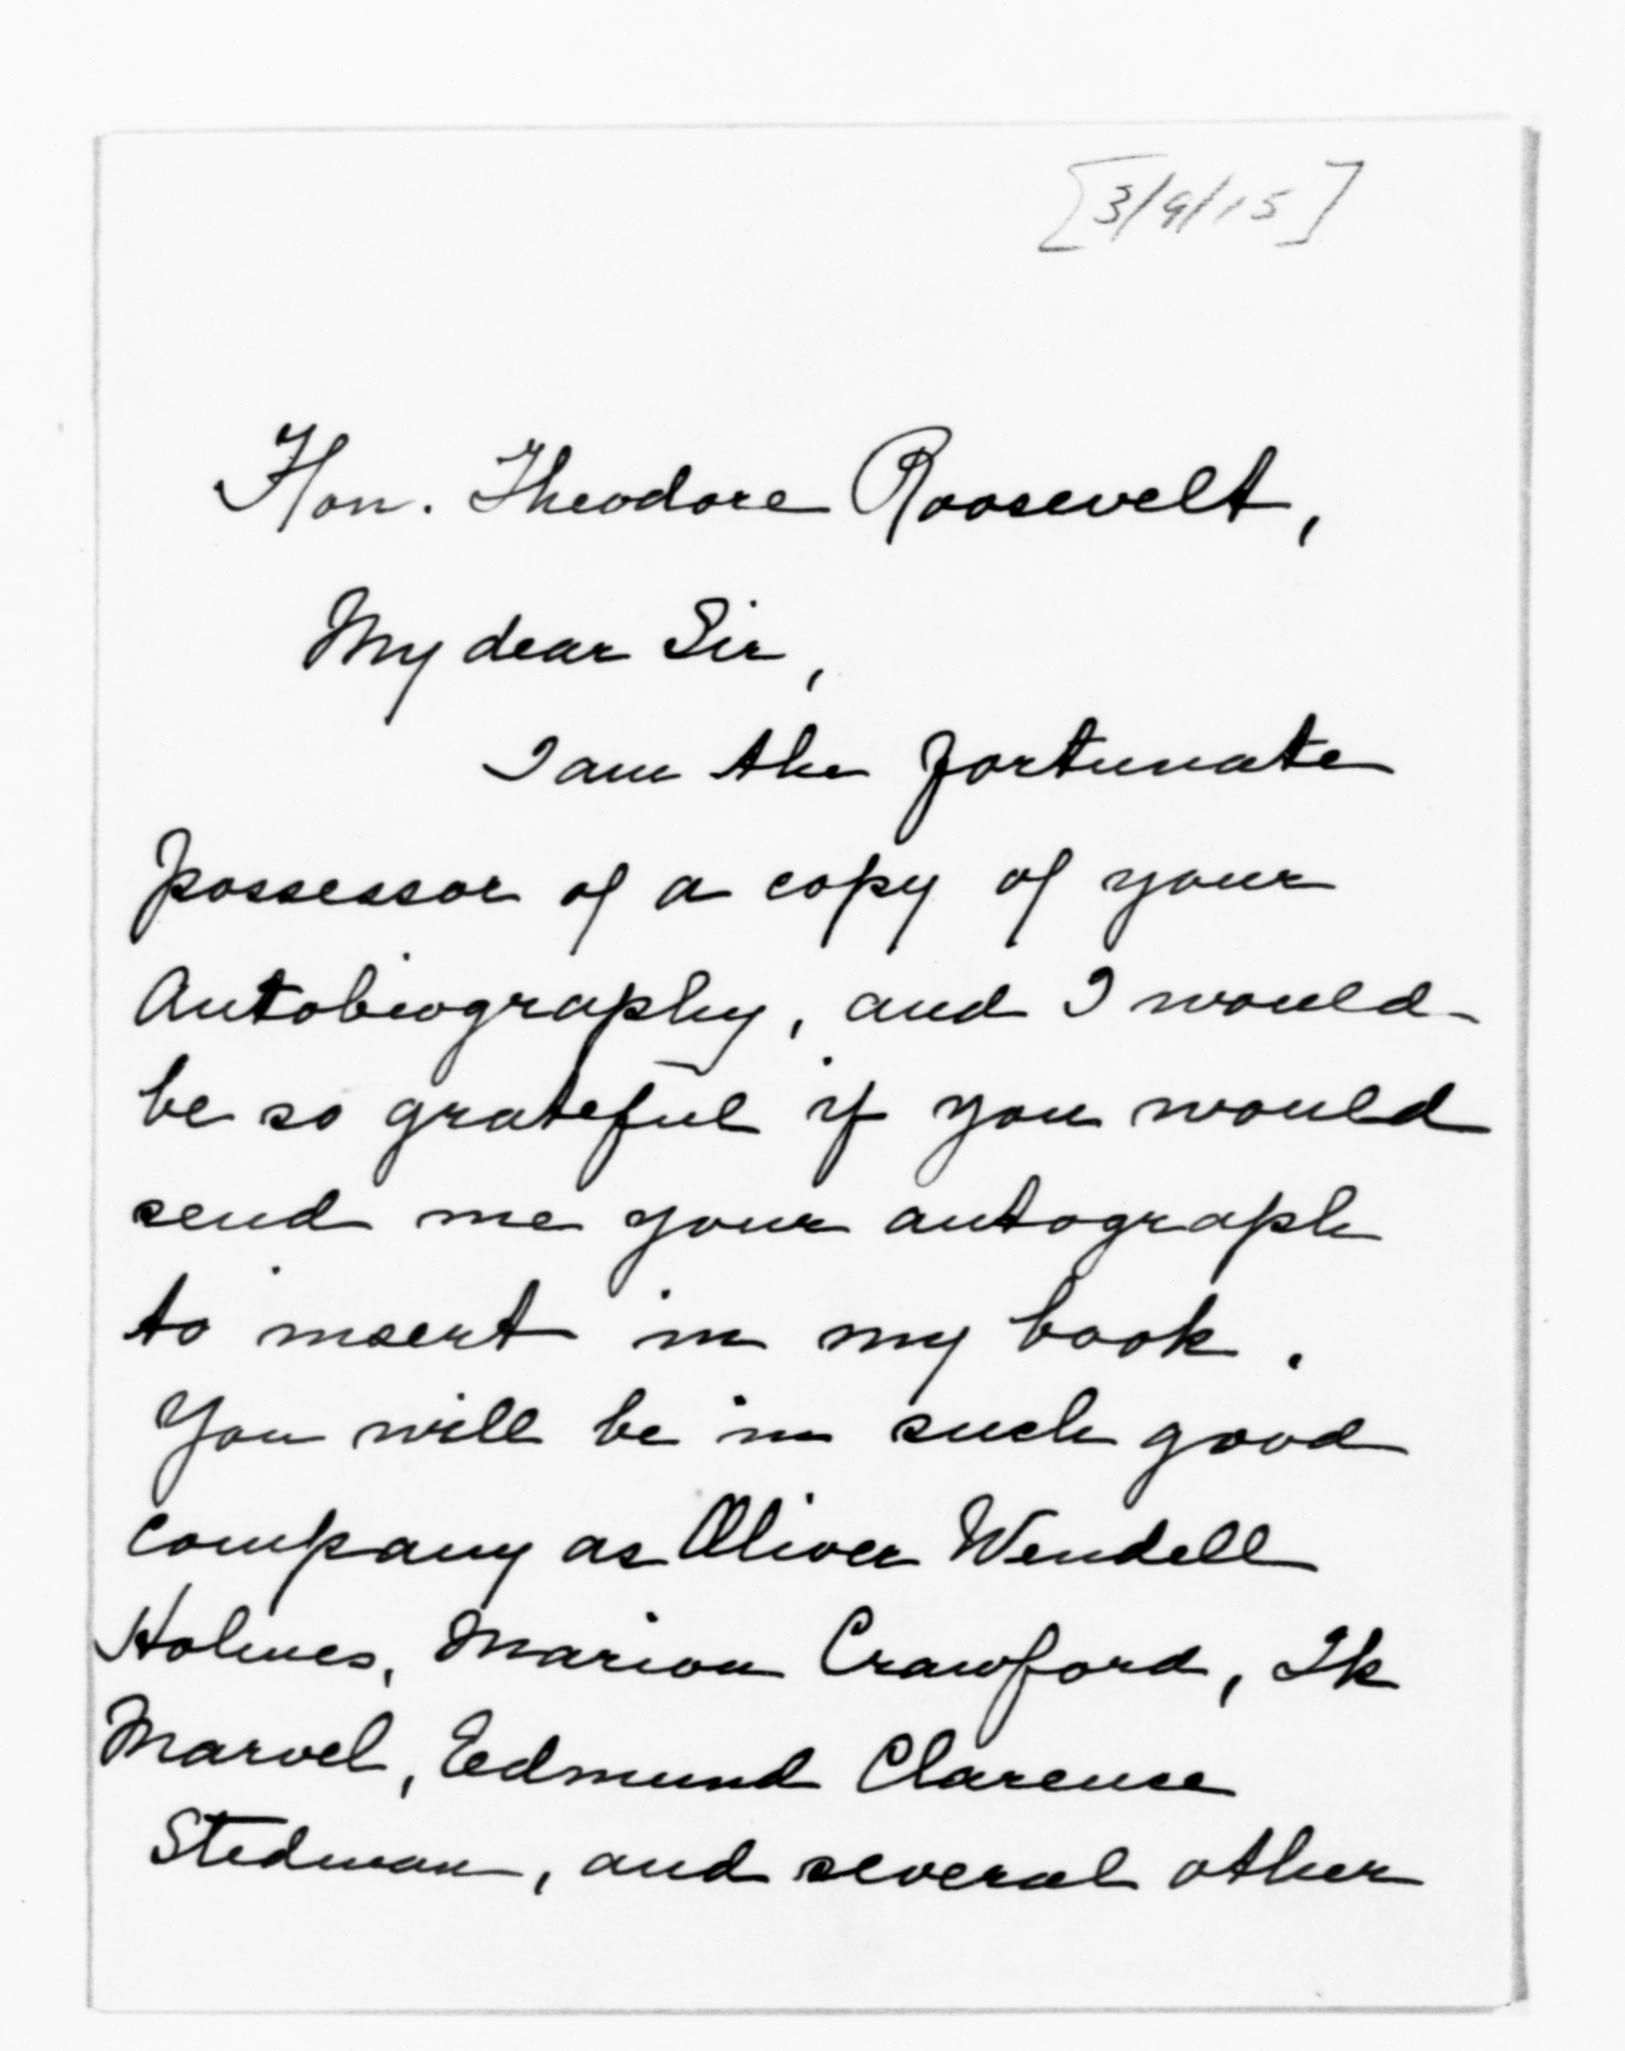 [3/9/15]
Hon. Theodore Roosevelt,
My dear Sir,
I am the fortunate
possessor of a copy of your
Autobiography, and I would
be so grateful if you would
send me your autograph
to insert in my book.
You will be in such good
company as Oliver Wendell
Holmes, Marion Crawford, Ik
Marvel, Edmund Clarence
Stedman, and several other